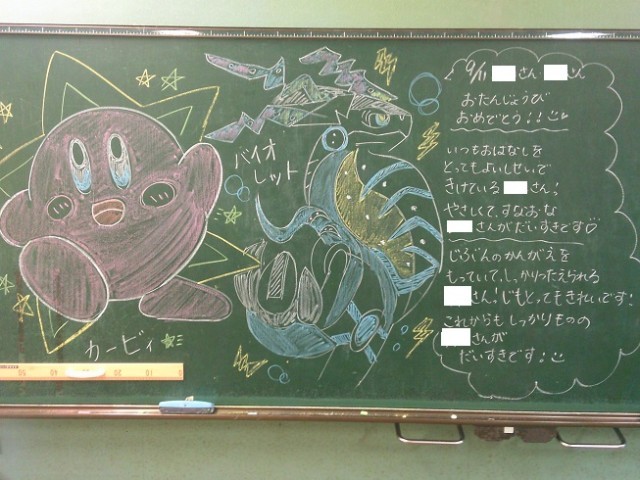 カービィ
バイオ
レット
9/11 さん さん
おたんじょうび
おめでとう!!
いつもおはなしを
とってもよいしせいで
きけている さん!
やさしくて、すなおな
さんがだいすきです♡
じぶんのかんがえを
もっていて、しっかりつたえられる
さん!じもとてもきれいです!
これからもしっかりものの
さんが
だいすきです!
50 40 30 20 10 0